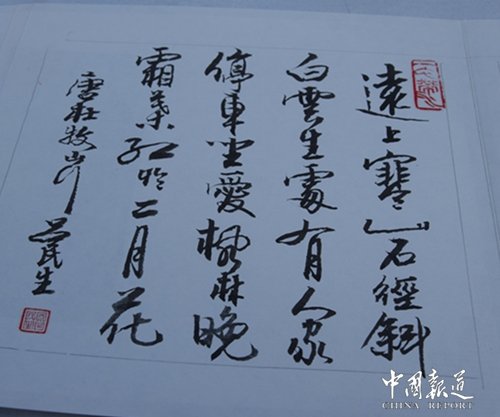 遠上寒山石徑斜
白雲生處有人家
停車坐愛楓林晚
霜葉紅於二月花
唐杜牧山行
民生
中國報道
CHINA REPORT